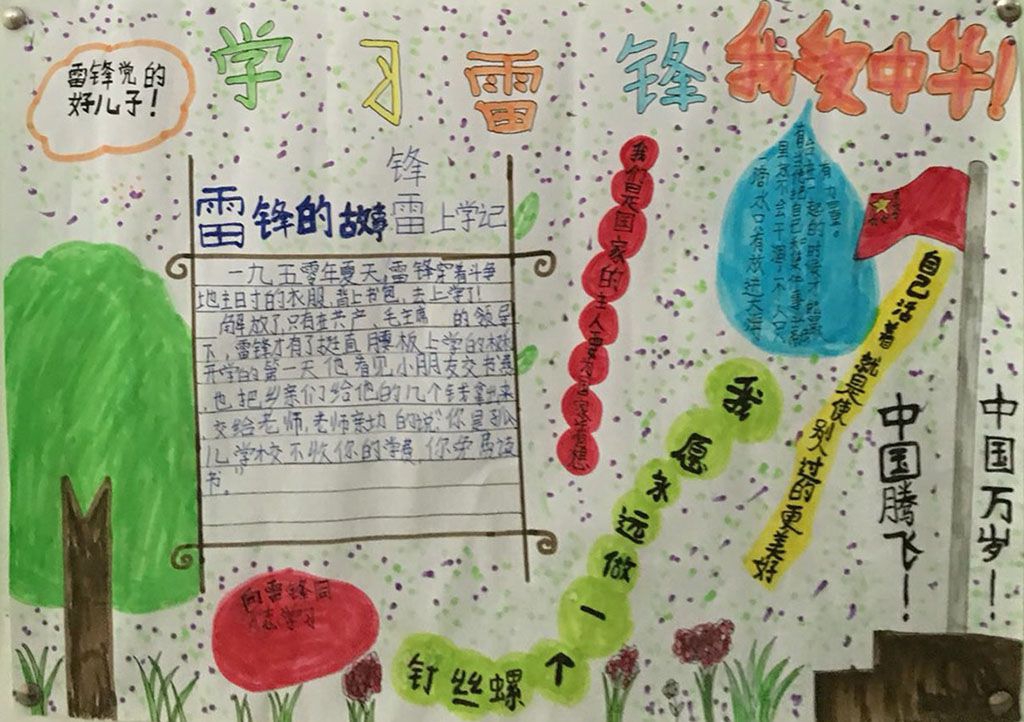 学习雷锋
我爱中华!
雷锋党的
好儿子!
雷锋的故事
锋
雷上学记
一九五零年夏天,雷锋穿着斗争
地主时的衣服,背上书包,去上学了!
解放了,只有在共产、毛主席 的领导
下,雷锋才有了挺直腰板上学的
开学的第一天他看见小朋友交书费
也把乡亲们给他的几个钱拿出来
交给老师,老师亲切的说:"你是孤
儿,学校不收你的学费,你免费读
书。"
我们是国家的主人要为国家着想
自己活着就是使别人过的更美好
我愿永远做一个螺丝钉
向雷锋同
志学习
中国腾飞!
中国万岁!